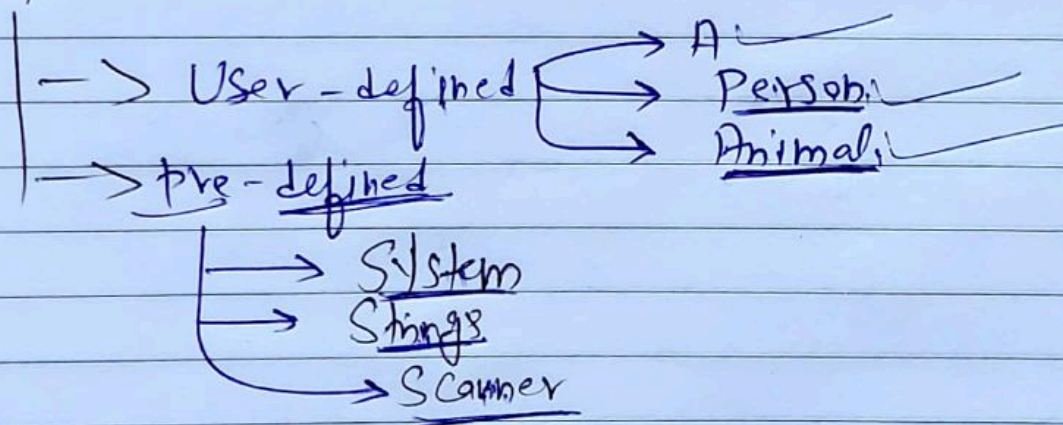 A
-> User-defined -> Person
-> Animal
-> pre-defined
-> System
-> Strings
-> Scanner